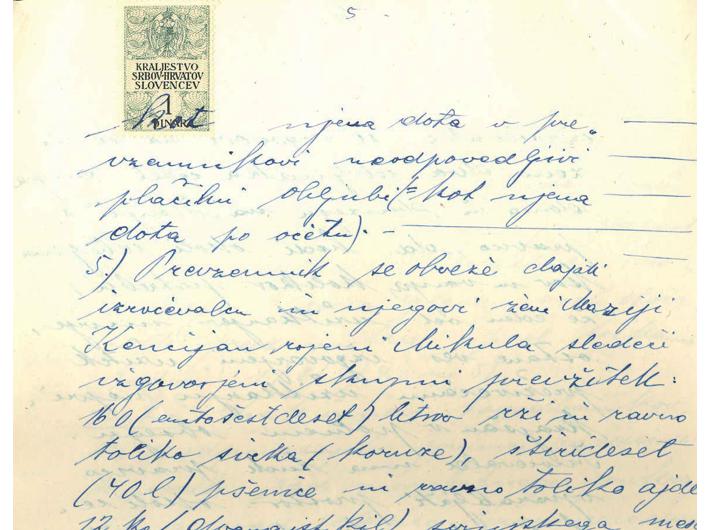 5.
KRALJESTVO
SRBOV·HRVATOV
SLOVENCEV
1
DINAR
Kot njena dota v pre„
vzemnikovi neodpovedljivi
plačilni obljubi (= kot njena
dota po očetu). -
5.) Prevzemnik se obveže dajati
izročevalcu in njegovi ženi Mariji
Kencijan rojeni Mikula sledeči
vžgovorjeni skupni prevžitek:
160 (enstošestdeset) litrov rži in ravno
toliko sirka (koruze), štirideset
(40 l) pšenice in ravno toliko ajde
12 kg (dvanajst kil) svinjskega